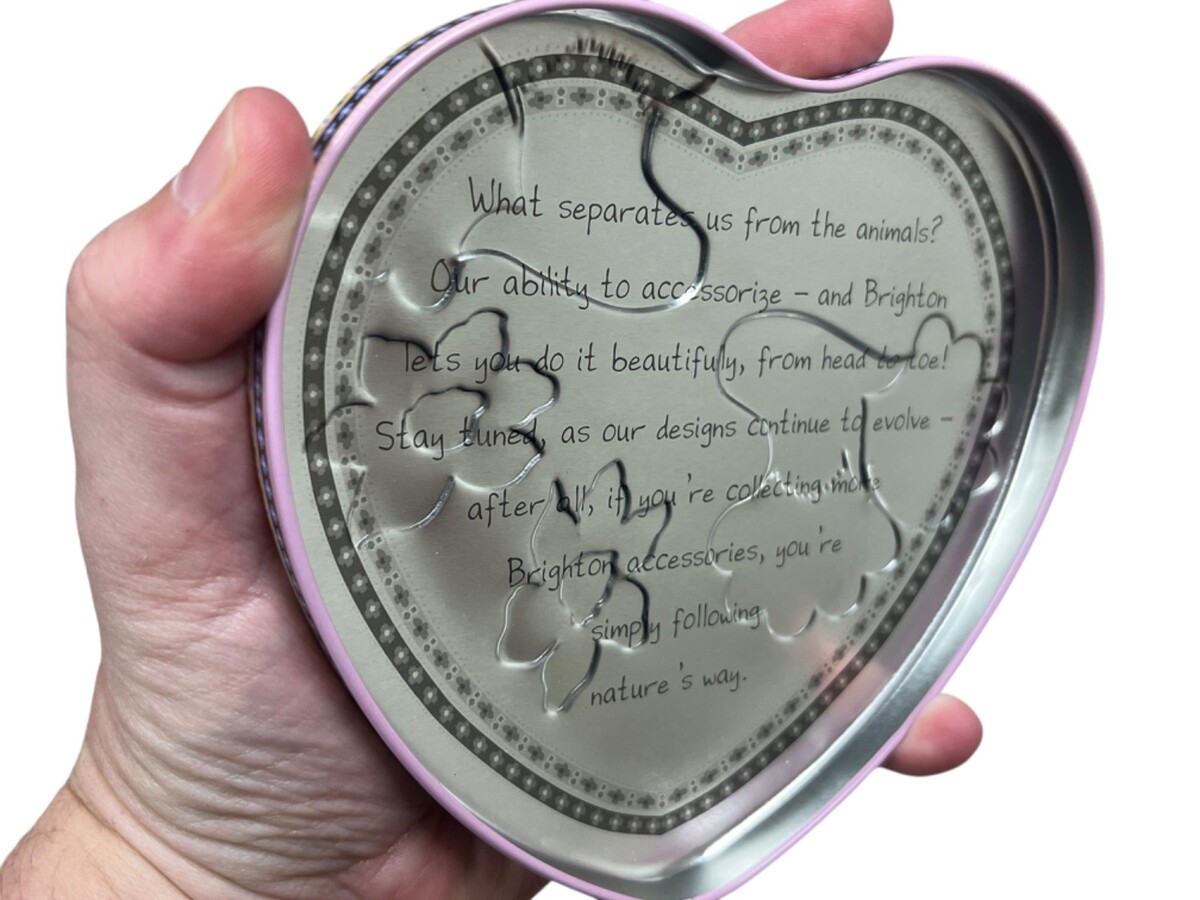 What separates us from the animals?
Our ability to accessorize – and Brighton
lets you do it beautifully, from head to toe!
Stay tuned, as our designs continue to evolve –
after all, if you're collecting more
Brighton accessories, you're
simply following
nature's way.